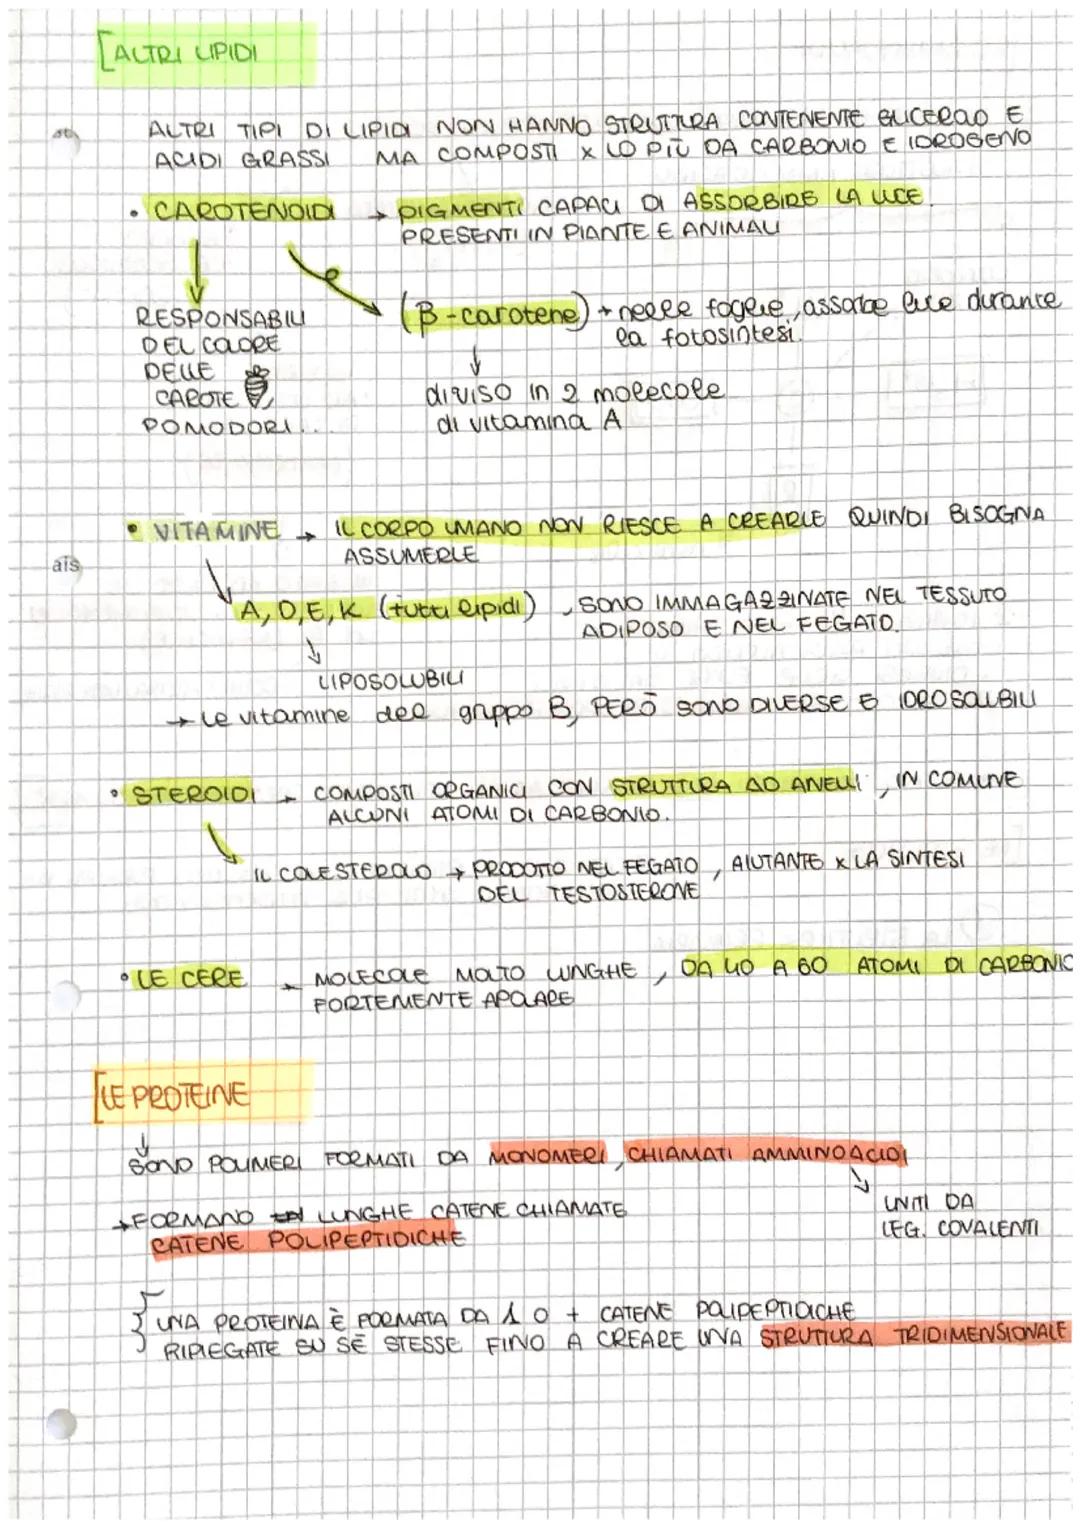 [ALTRI LIPIDI
ALTRI TIPI DI LIPIDI NON HANNO STRUTTURA CONTENENTE GLICEROLO E
ACIDI GRASSI MA COMPOSTI x LO PIÙ DA CARBONIO E IDROGENO
• CAROTENOIDI → PIGMENTI CAPACI DI ASSORBIRE LA LUCE.
PRESENTI IN PIANTE E ANIMALI
RESPONSABILI
DEL COLORE
DELLE
CAROTE,
POMODORI...
(β-carotene) → nelle foglie, assorbe luce durante
la fotosintesi.
↓
diviso in 2 molecole
di vitamina A
• VITAMINE → IL CORPO UMANO NON RIESCE A CREARLE QUINDI BISOGNA
ASSUMERLE
ais
A, D, E, K (tutti lipidi), SONO IMMAGAZZINATE NEL TESSUTO
ADIPOSO E NEL FEGATO.
↓
LIPOSOLUBILI
→ Le vitamine del gruppo B, PERÒ SONO DIVERSE E IDROSOLUBILI
• STEROIDI → COMPOSTI ORGANICI CON STRUTTURA AD ANELLI, IN COMUNE
ALCUNI ATOMI DI CARBONIO.
IL COLESTEROLO → PRODOTTO NEL FEGATO, AIUTANTE x LA SINTESI
DEL TESTOSTERONE
• LE CERE → MOLECOLE MOLTO LUNGHE, DA 40 A 60 ATOMI DI CARBONIO
FORTEMENTE APOLARE
[LE PROTEINE
↓
SONO POLIMERI FORMATI DA MONOMERI, CHIAMATI AMMINOACIDI
→ FORMANO LUNGHE CATENE CHIAMATE
CATENE POLIPEPTIDICHE
UNITI DA
LEG. COVALENTI
UNA PROTEINA È FORMATA DA 1 O + CATENE POLIPEPTIDICHE
RIPIEGATE SU SÉ STESSE FINO A CREARE UNA STRUTTURA TRIDIMENSIONALE